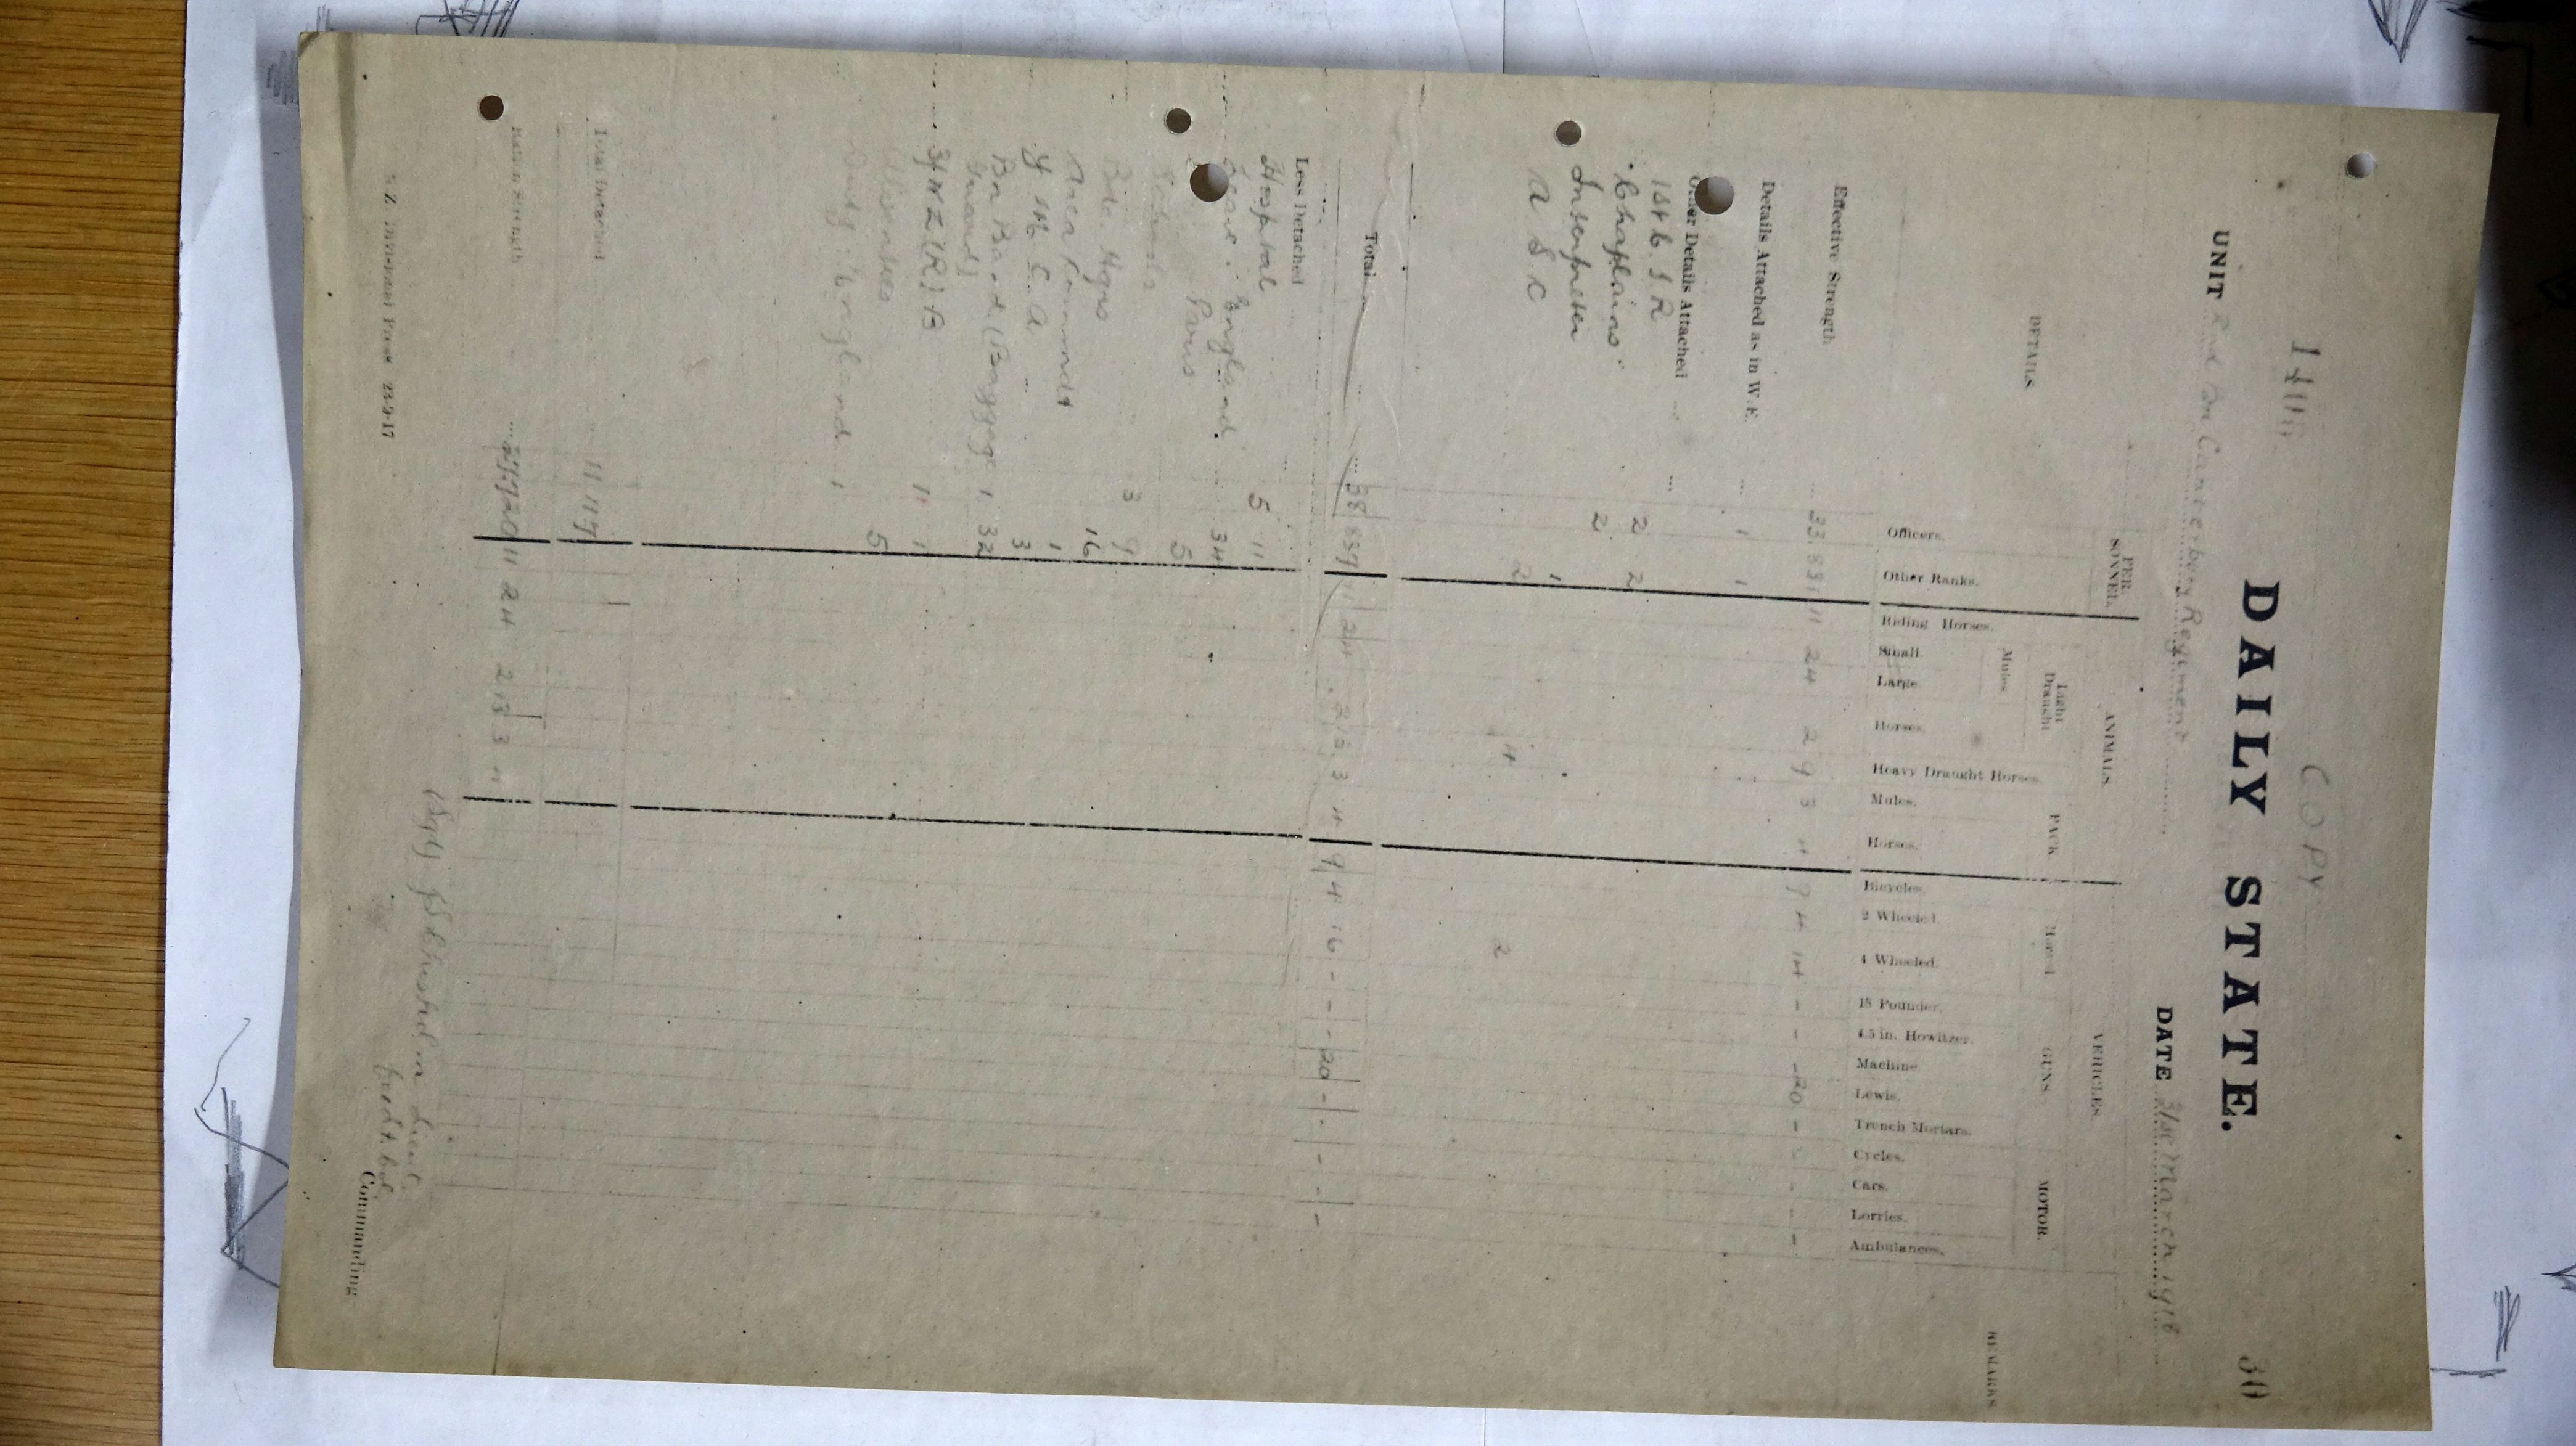 COPY
30
DAILY STATE.
UNIT 2nd Bn Canterbury Regiment DATE 31st March 1918
DETAILS PERSONNEL. ANIMALS. VEHICLES. REMARKS
Light Draught PACK GUNS MOTOR.
Mules
Officers. Other Ranks. Riding Horses. Small. Large. Horses. Heavy Draught Horses. Mules. Horses. Bicycles. 2 Wheeled. 4 Wheeled. 18 Pounder. 4.5 in. Howitzer. Machine Lewis. Trench Mortars. Cycles. Cars. Lorries. Ambulances.
Effective Strength 33 831 11 24 2 9 3 4 9 4 14 - - - 20 -
Details Attached as in W.E. 1 1
Other Details Attached
2 2
Chaplains 2
Interpreter 1
A S C 2 4 2
Total 38 837 11 24 2 13 3 4 9 4 16 - - - 20 - - - - -
Less Detached
Hospital 5 11
Leave: England 34
Paris 5
Schools 3 9
Bde. Hqrs 16
Area Commandt 1
Y M C A 3
Bn Band (Baggage Guard) 1 32
3/NZ(R)B 1 1
5
Duty: England 1
Total Detached 11 117
Ration Strength 27 720 11 24 2 13 3 4
(Sgd) Lieut.
Commanding
N.Z. Divisional Press 23-9-17